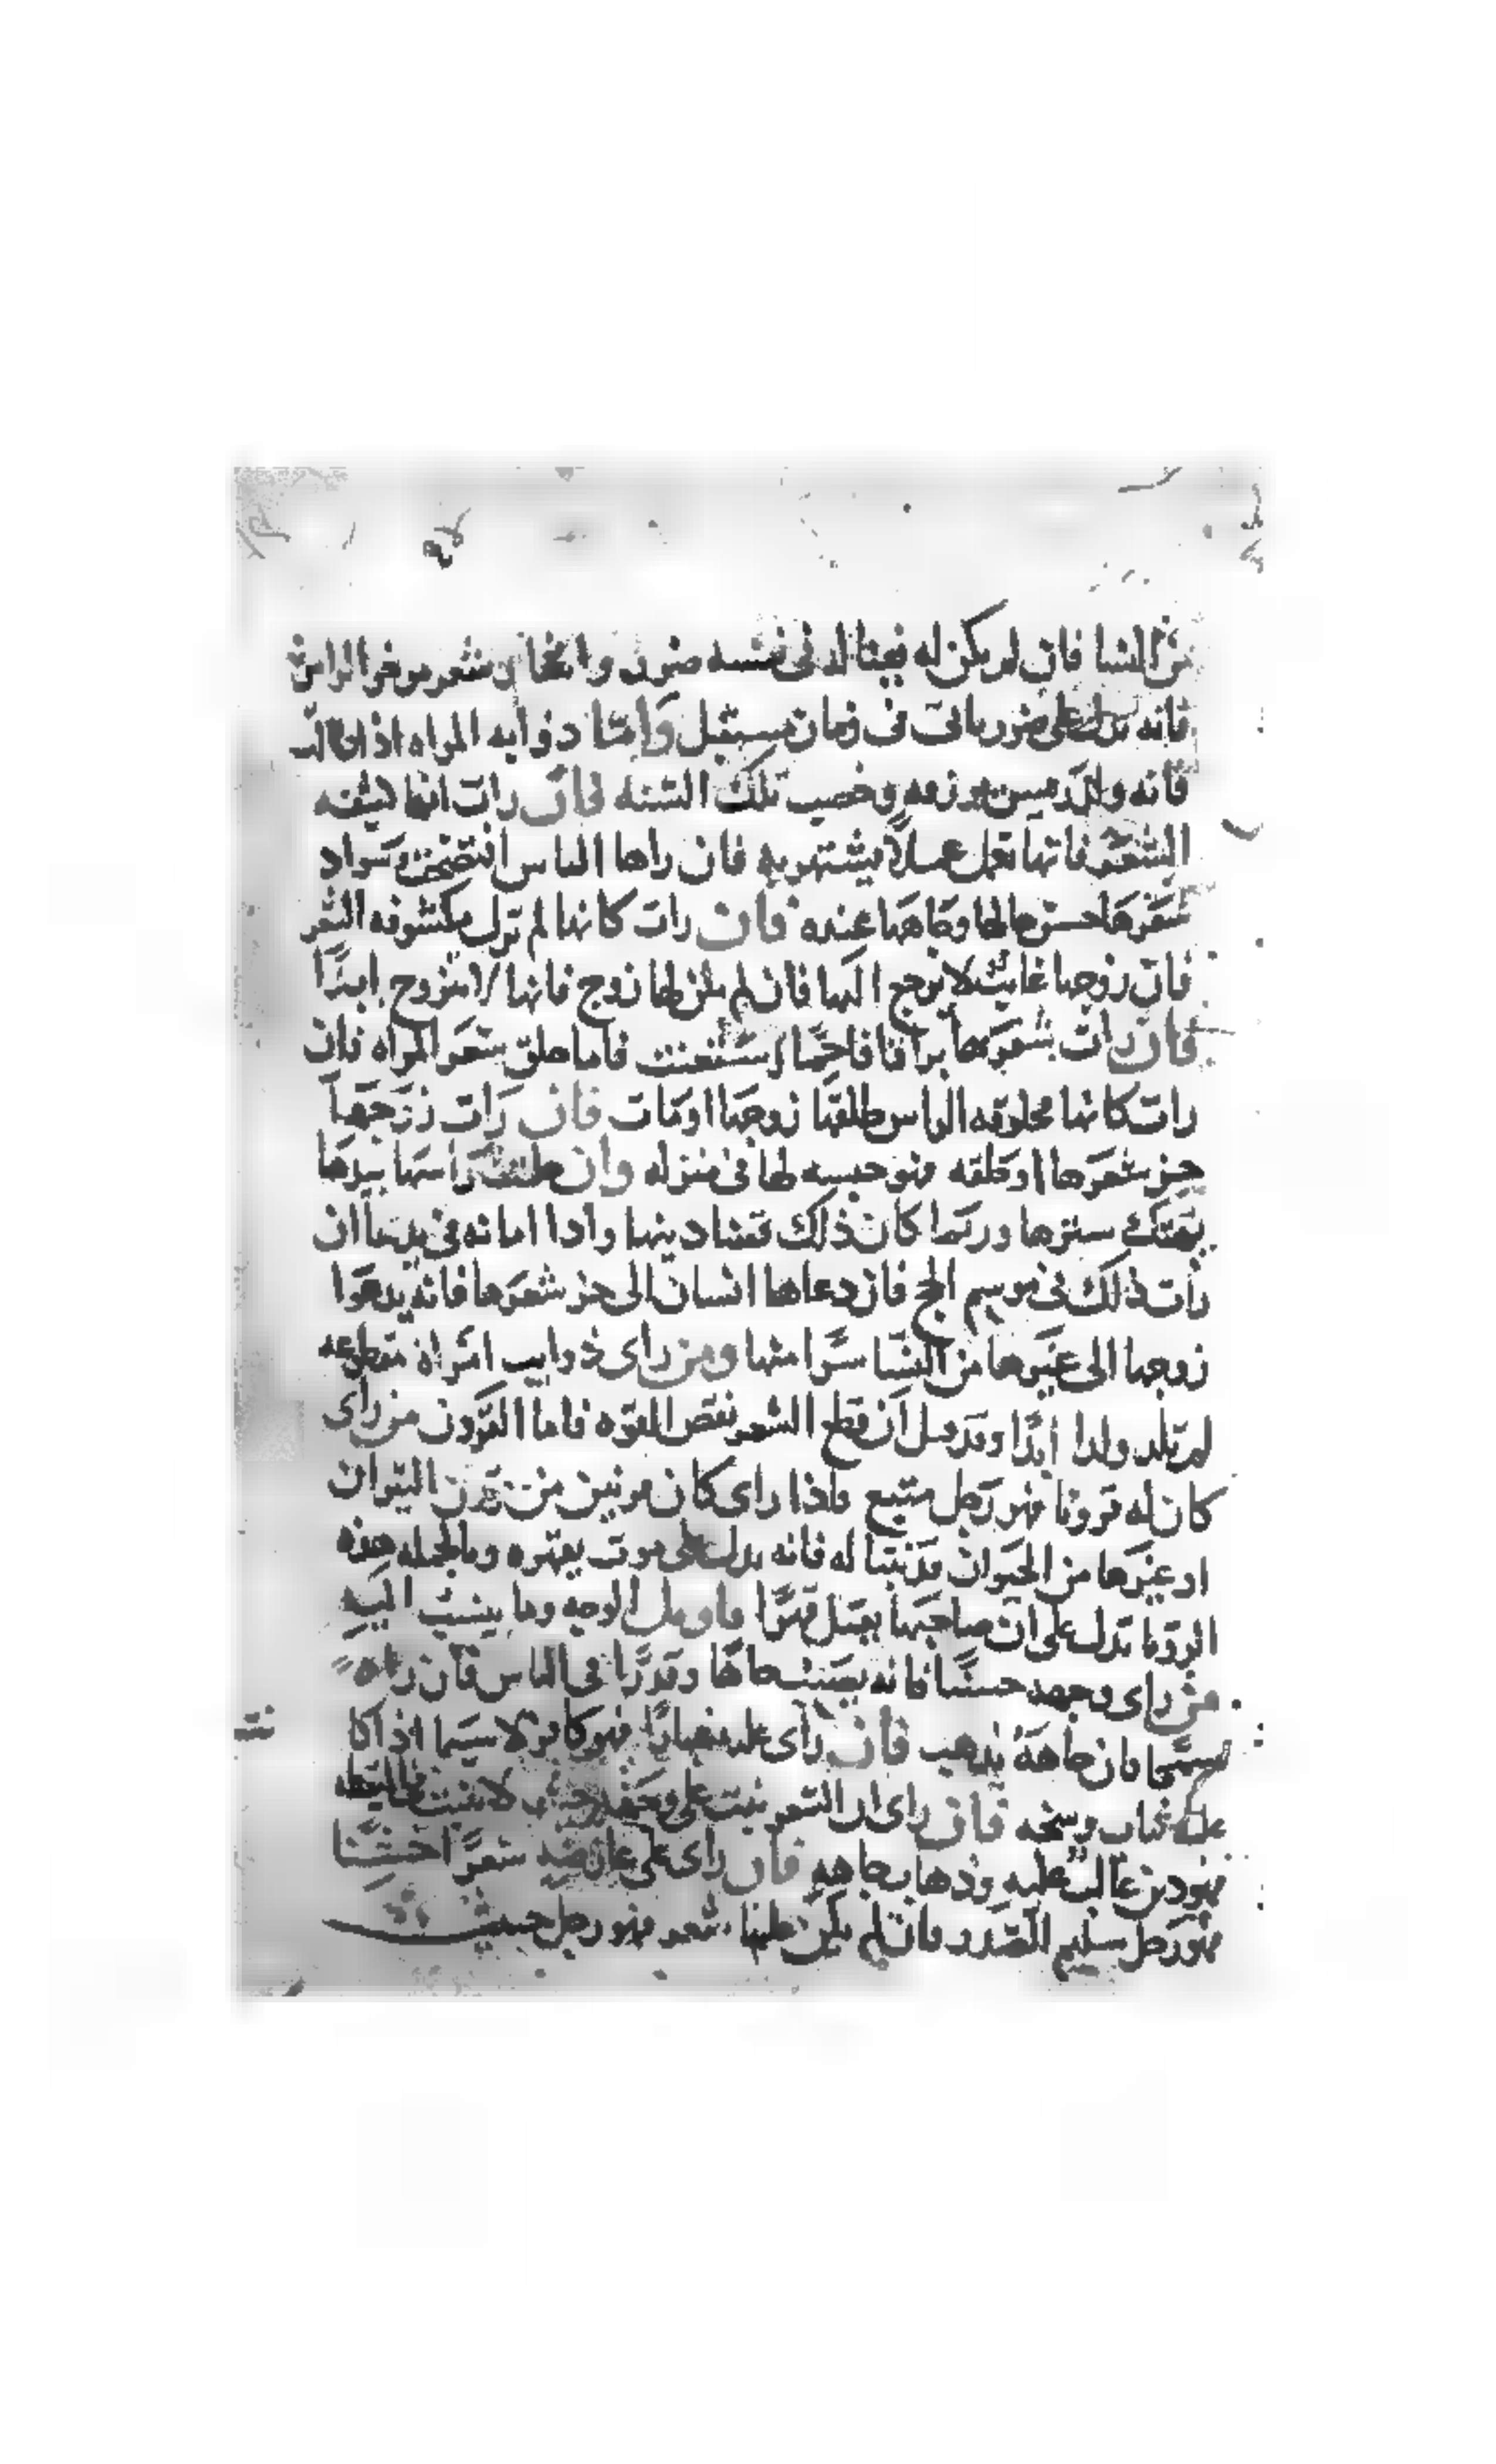 من النسا فان لم يكن له فيعتا لد فى نفسه ضرر وا شعر موخر الراس
فانه يدل على ضرر ياتى فى زمان مستقبل وامّا ذوابه المراه اذا
فانه ولد وخصب تلك السنه فان رات انها كثيفه
الشعر فانها تعمل عملًا يشتهر به فان راها الناس افتضحت وسواد
شعرها حسن حالها وجاهها عنده فان رات كانها لم تزل مكشوفه الشعر
فان زوجها غايبٌ لا يرجع اليها فان لم يكن لها زوج فانها لا تتزوج ابدًا
فان رات شعرها براقا فاحمًا استغنت فاما حلق شعر المراه فان
رات كانها محلوقه الراس طلقها زوجها او مات فان رات زوجها
جز شعرها او حلقه فهو حبسه لها فى منزله وان حلقت راسها بيدها
يهتك سترها وربما كان ذلك قضا دينها وادا امانه فى يدها ان
رات ذلك فى موسم الحج فان دعاها انسان الى جز شعرها فانه يدعوا
زوجها الى غيرها من النسا سرًا منها ومن راى ذوايب امراه مقطوعه
لم تلد ولدا ابدًا وقد قيل ان قطع الشعر نقص القوه فاما القرون من راى
كان له قرونا فهو رجل منيع فاذا راى كان قرنين من قرون الثيران
او غيرها من الحيوان قد نبتا له فانه يدل على موت بقهره وبالجمله هذه
الرويا تدل على ان صاحبها يقتل قهرًا تاويل الوجه وما ينسب اليه
من راى وجهه حسنًا فانه يصيب جاهًا وقدرًا فى الناس فان راه
سمجا فان جاهه يذهب فان راى عليه غبارًا فهو كافر لا سيما اذا كا
عليه ثياب وسخه فان راى ان الشعر نبت على وجهه حيث لا ينبت
فهو دين غالب عليه وذهاب جاهه فان راى على عارضيه شعرًا
فهو رجل سليم الصدر فان لم يكن عليها شعر فهو رجل خبيث